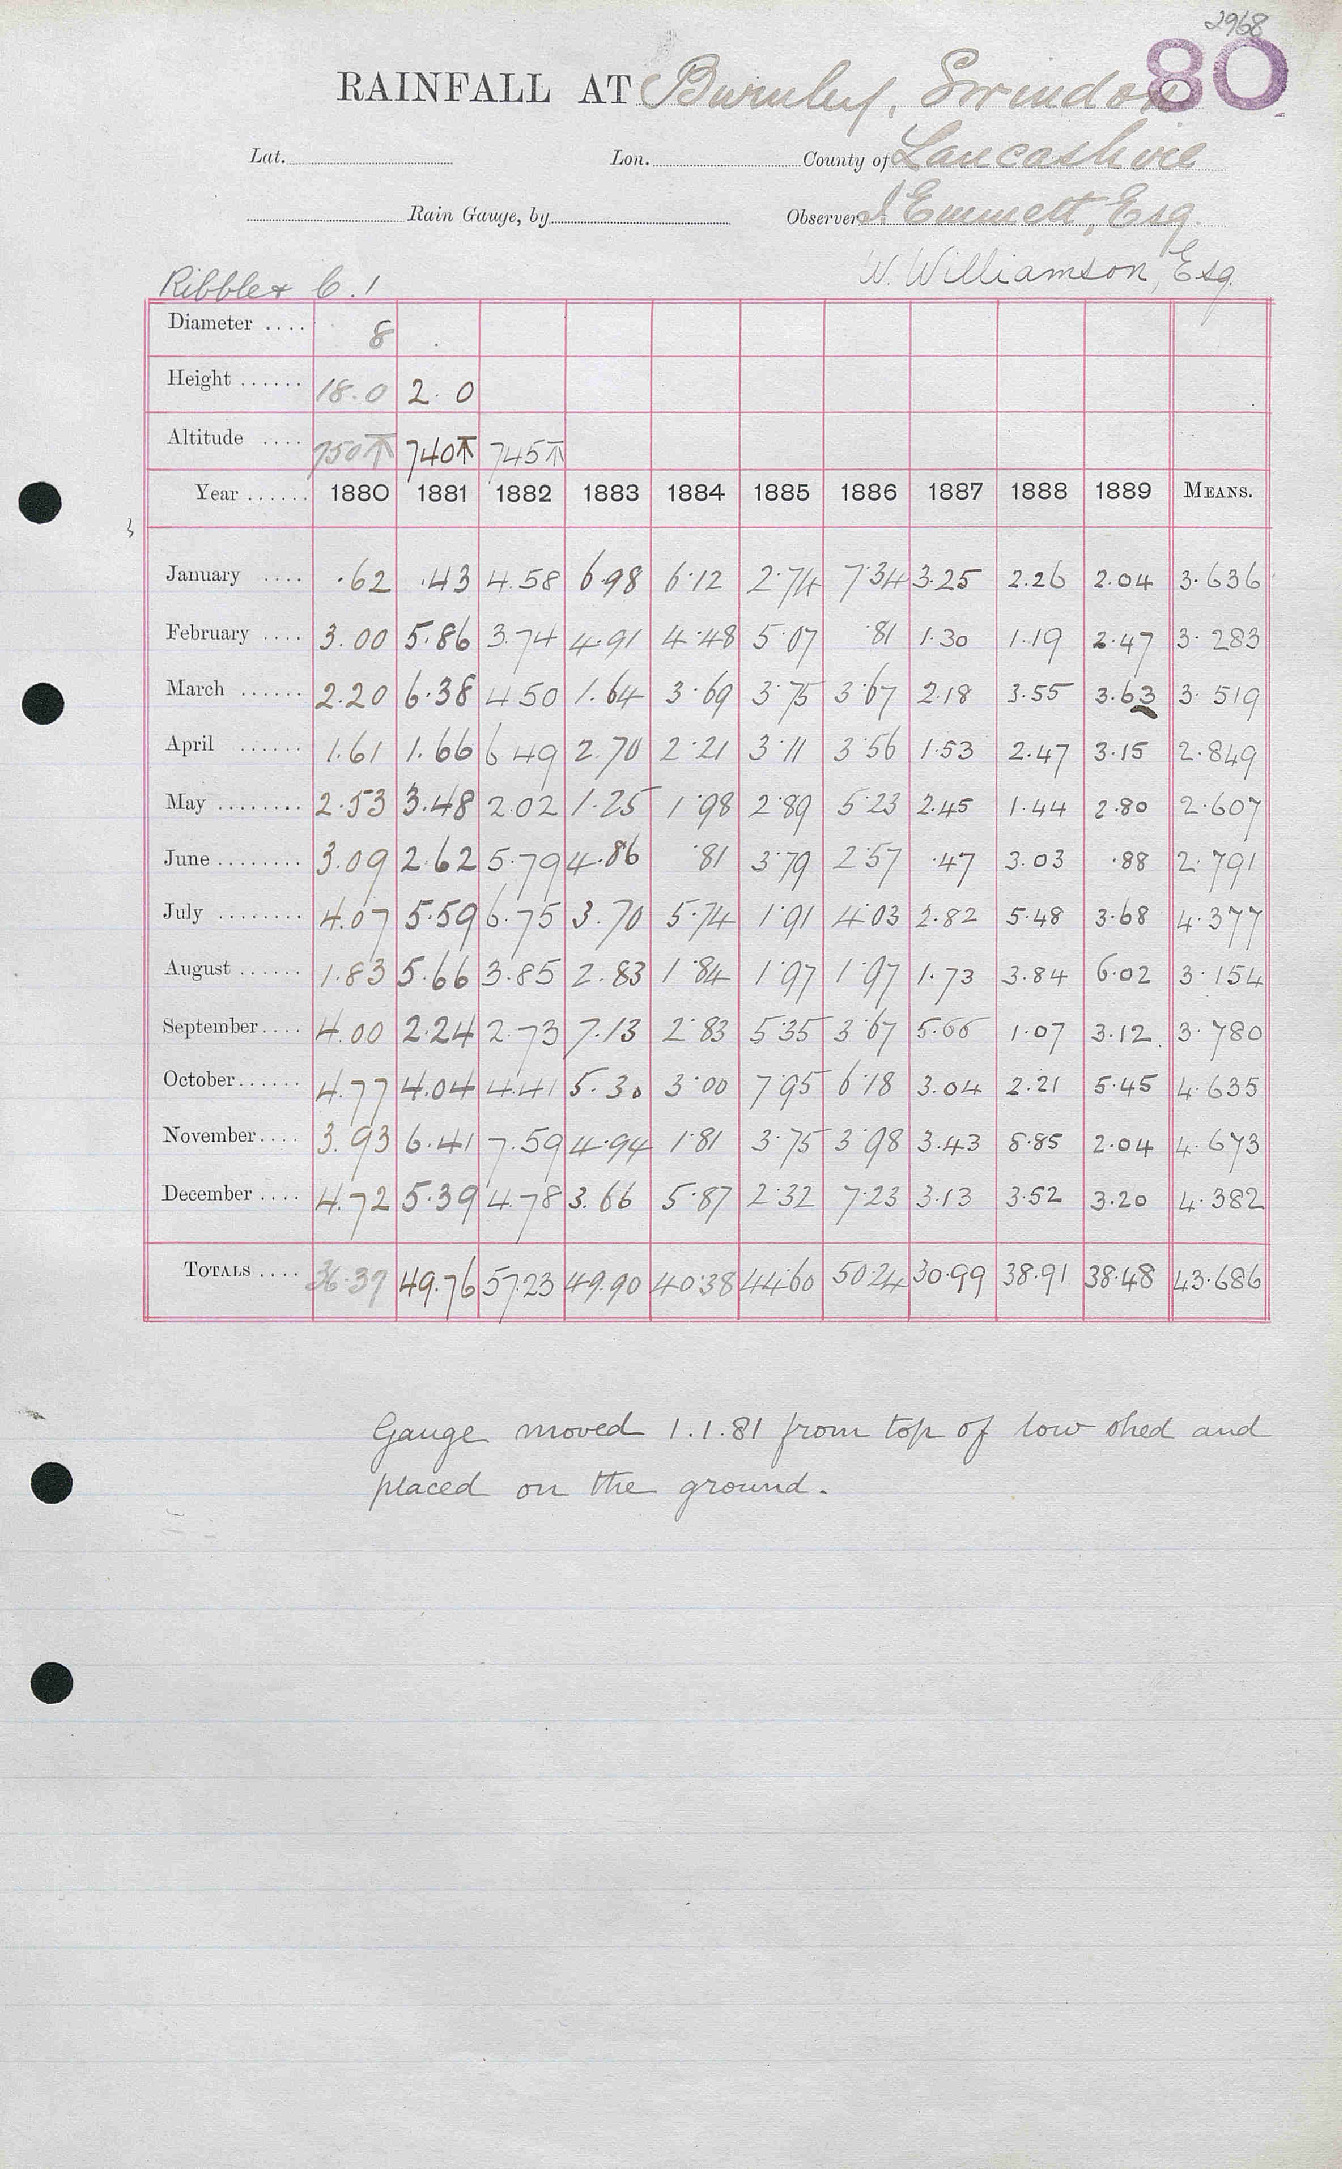 2968
80
RAINFALL AT Burnley, Swinden
Lat. Lon. County of Lancashire
Rain Gauge, by Observer J. Emmett, Esq.
W. Williamson, Esq.
Ribble & C. 1
Diameter .... 8
Height ...... 18.0 2.0
Altitude .... 750 740 745
Year ...... 1880 1881 1882 1883 1884 1885 1886 1887 1888 1889 MEANS.
January .... .62 .43 4.58 6.98 6.12 2.74 7.34 3.25 2.26 2.04 3.636
February .... 3.00 5.86 3.74 4.91 4.48 5.07 .81 1.30 1.19 2.47 3.283
March ...... 2.20 6.38 4.50 1.64 3.69 3.75 3.67 2.18 3.55 3.63 3.519
April ...... 1.61 1.66 6.49 2.70 2.21 3.11 3.56 1.53 2.47 3.15 2.849
May ........ 2.53 3.48 2.02 1.25 1.98 2.89 5.23 2.45 1.44 2.80 2.607
June ........ 3.09 2.62 5.79 4.86 .81 3.79 2.57 .47 3.03 .88 2.791
July ........ 4.07 5.59 6.75 3.70 5.74 1.91 4.03 2.82 5.48 3.68 4.377
August ...... 1.83 5.66 3.85 2.83 1.84 1.97 1.97 1.73 3.84 6.02 3.154
September.... 4.00 2.24 2.73 7.13 2.83 5.35 3.67 5.66 1.07 3.12 3.780
October...... 4.77 4.04 4.41 5.30 3.00 7.95 6.18 3.04 2.21 5.45 4.635
November.... 3.93 6.41 7.59 4.94 1.81 3.75 3.98 3.43 8.85 2.04 4.673
December .... 4.72 5.39 4.78 3.66 5.87 2.32 7.23 3.13 3.52 3.20 4.382
TOTALS .... 36.37 49.76 57.23 49.90 40.38 44.60 50.24 30.99 38.91 38.48 43.686
Gauge moved 1.1.81 from top of low shed and
placed on the ground.